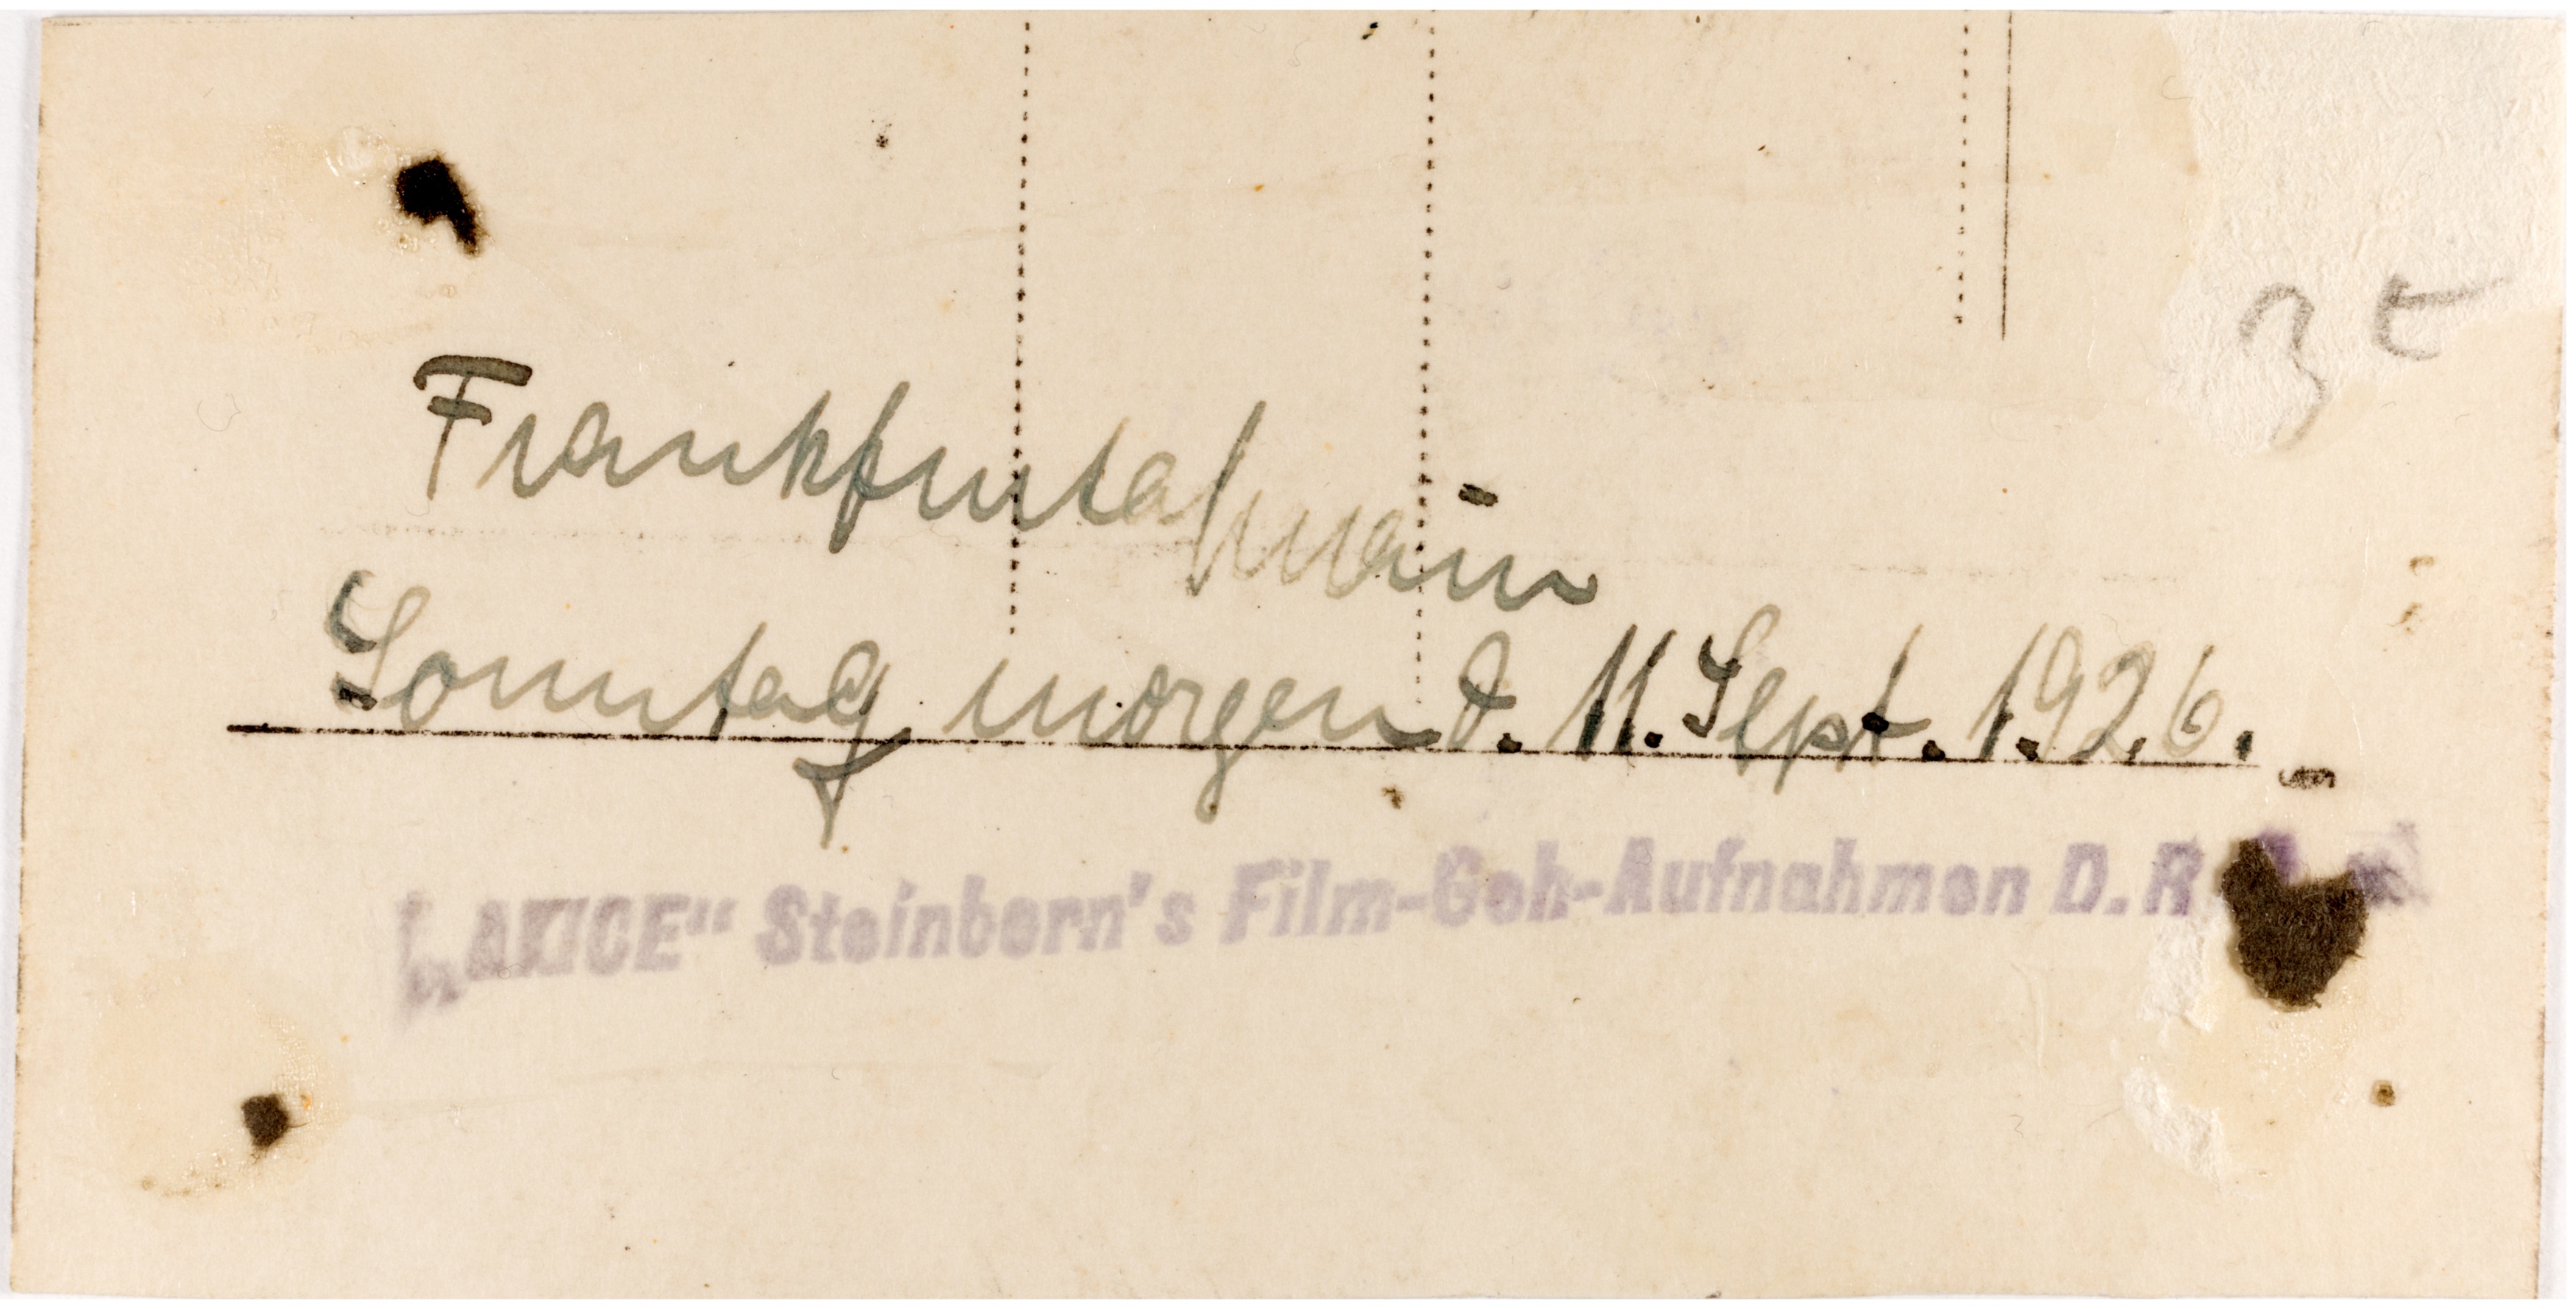 3 t
Frankfurt a/Main
Sonntag morgen d. 11. Sept. 1926.
„AKICE“ Steinborn's Film-Geh-Aufnahmen D. R.